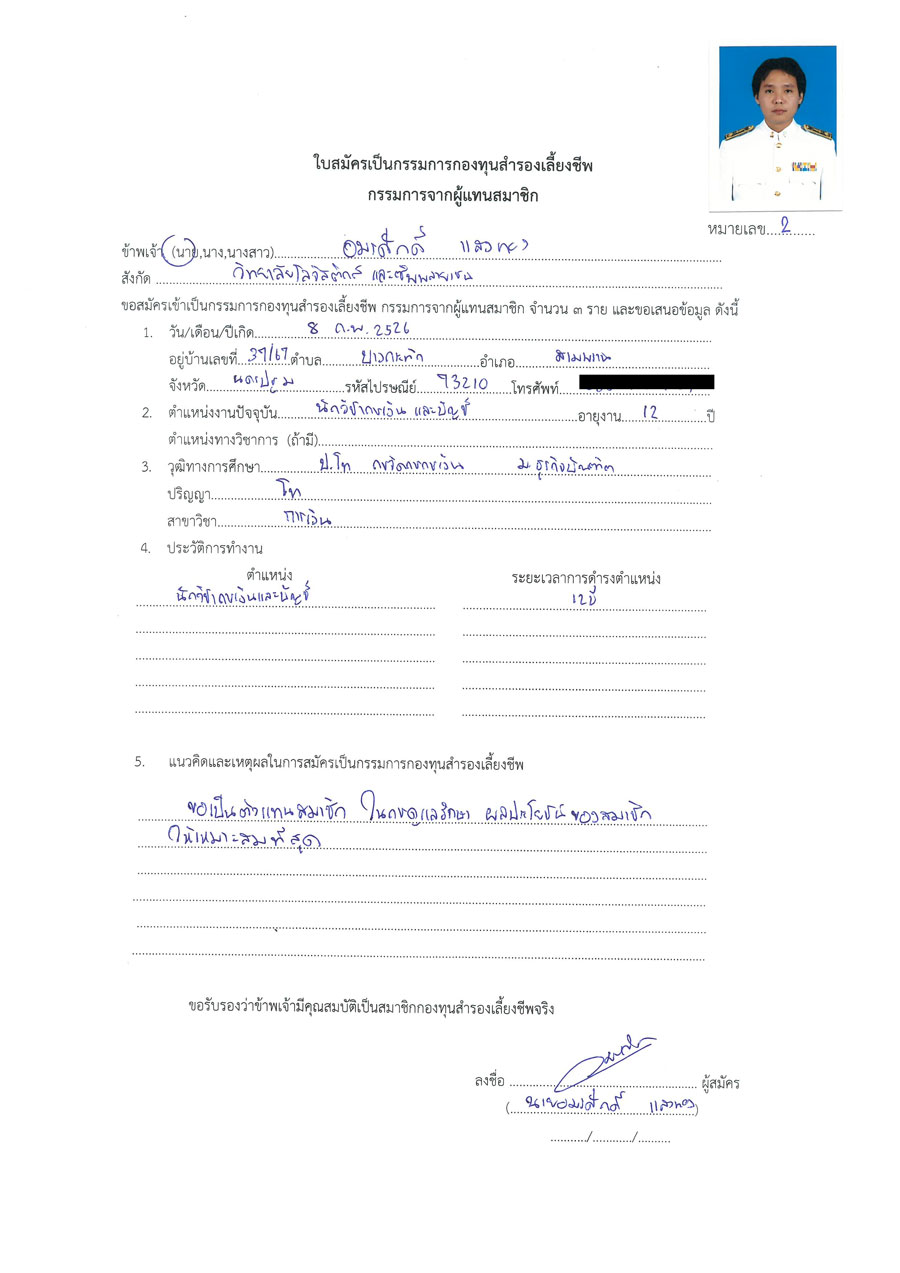 ใบสมัครเป็นกรรมการกองทุนสำรองเลี้ยงชีพ
กรรมการจากผู้แทนสมาชิก
หมายเลข....2....
ข้าพเจ้า (นาย,นาง,นางสาว) อมรศักดิ์
สังกัด วิทยาลัยโลจิสติกส์ และซัพพลายเชน
ขอสมัครเข้าเป็นกรรมการกองทุนสำรองเลี้ยงชีพ กรรมการจากผู้แทนสมาชิก จำนวน ๓ ราย และขอเสนอข้อมูล ดังนี้
1. วัน/เดือน/ปีเกิด 8 ก.พ. 2526
อยู่บ้านเลขที่ 39/67 ตำบล บางกระทึก อำเภอ สามพราน
จังหวัด นครปฐม รหัสไปรษณีย์ 73210 โทรศัพท์
2. ตำแหน่งงานปัจจุบัน นักวิชาการเงิน และบัญชี อายุงาน 12 ปี
ตำแหน่งทางวิชาการ (ถ้ามี)
3. วุฒิทางการศึกษา ป.โท การเงิน ม.ธุรกิจบัณฑิต
ปริญญา โท
สาขาวิชา การเงิน
4. ประวัติการทำงาน
ตำแหน่ง ระยะเวลาการดำรงตำแหน่ง
นักวิชาการเงินและบัญชี 12 ปี
5. แนวคิดและเหตุผลในการสมัครเป็นกรรมการกองทุนสำรองเลี้ยงชีพ
ขอเป็นตัวแทนสมาชิก ในการดูแลรักษา ผลประโยชน์ ของสมาชิก
ให้เหมาะสมที่สุด
ขอรับรองว่าข้าพเจ้ามีคุณสมบัติเป็นสมาชิกกองทุนสำรองเลี้ยงชีพจริง
ลงชื่อ ผู้สมัคร
(นายอมรศักดิ์ )
........../.........../..........